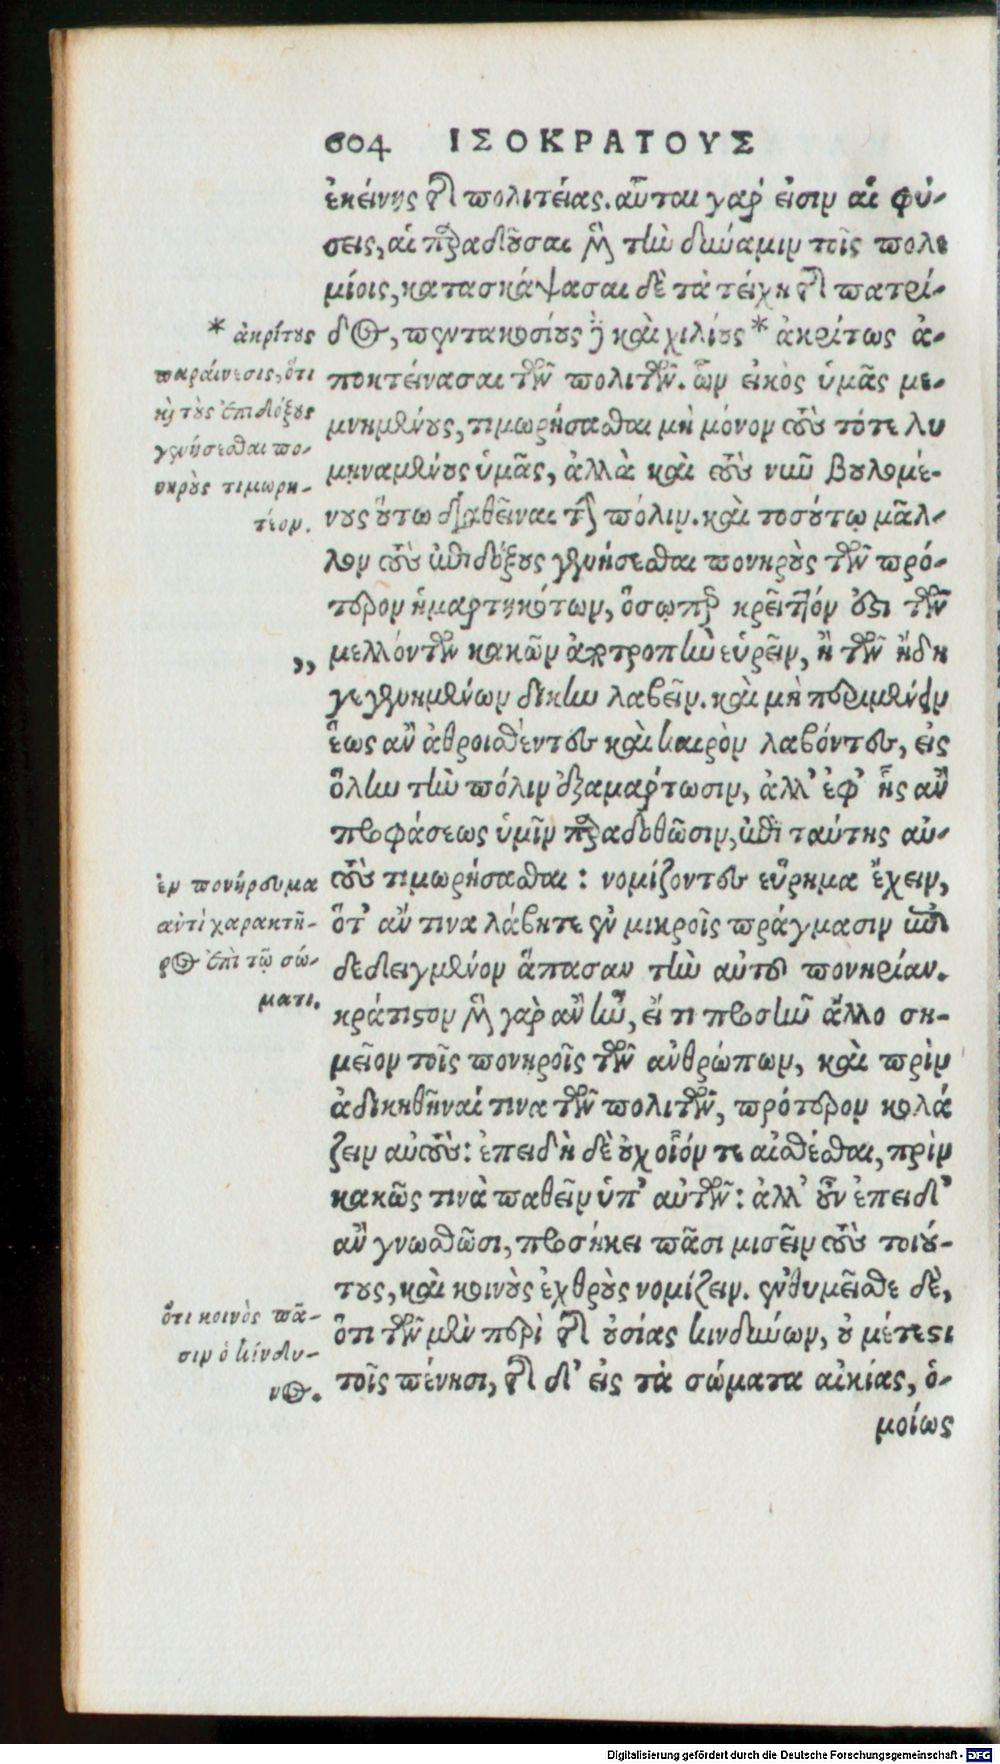 604 ΙΣΟΚΡΑΤΟΥΣ
ἐκείνης τῆς πολιτείας. αὗται γάρ εἰσιν αἱ φύ-
σεις, αἱ παραδοῦσαι μὲν τὴν δύναμιν τοῖς πολε
μίοις, κατασκάψασαι δὲ τὰ τείχη τῆς πατρί-
δος, πεντακοσίους δὲ καὶ χιλίους * ἀκρίτως ἀ-
ποκτείνασαι τῶν πολιτῶν. ὧν εἰκὸς ὑμᾶς με-
μνημένους, τιμωρήσασθαι μὴ μόνον τοὺς τότε λυ
μηναμένους ὑμᾶς, ἀλλὰ καὶ τοὺς νῦν βουλομέ-
νους οὕτω διαθεῖναι τὴν πόλιν. καὶ τοσούτῳ μᾶλ-
λον τοὺς ἐπιδόξους γενήσεσθαι πονηροὺς τῶν πρό-
τερον ἡμαρτηκότων, ὅσῳπερ κρεῖττόν ἐστι τῶν
„ μελλόντων κακῶν ἀποτροπὴν εὑρεῖν, ἢ τῶν ἤδη
γεγενημένων δίκην λαβεῖν. καὶ μὴ περιμένειν
ἕως ἂν ἀθροισθέντες καὶ καιρὸν λαβόντες, εἰς
ὅλην τὴν πόλιν ἐξαμάρτωσιν, ἀλλ' ἐφ' ἧς ἂν
προφάσεως ὑμῖν παραδοθῶσιν, ἐπὶ ταύτης αὐ-
τοὺς τιμωρήσασθαι: νομίζοντες εὕρημα ἔχειν,
ὅτ' ἄν τινα λάβητε ἐν μικροῖς πράγμασιν ἐπι
δεδειγμένον ἅπασαν τὴν αὐτοῦ πονηρίαν.
κράτιστον μὲν γὰρ ἂν ἦν, εἴ τι προσῆν ἄλλο ση-
μεῖον τοῖς πονηροῖς τῶν ἀνθρώπων, καὶ πρὶν
ἀδικηθῆναί τινα τῶν πολιτῶν, πρότερον κολά
ζειν αὐτούς: ἐπειδὴ δὲ οὐχ οἷόν τε αἰσθέσθαι, πρὶν
κακῶς τινὰ παθεῖν ὑπ' αὐτῶν: ἀλλ' οὖν ἐπειδ'
ἂν γνωσθῶσι, προσήκει πᾶσι μισεῖν τοὺς τοιού-
τους, καὶ κοινοὺς ἐχθροὺς νομίζειν. ἐνθυμεῖσθε δὲ,
ὅτι τῶν μὲν περὶ τῆς οὐσίας κινδύνων, οὐ μέτεστι
τοῖς πένησι, τῆς δ' εἰς τὰ σώματα αἰκίας, ὁ-
μοίως
* ἀκρίτους
παραίνεσις, ὅτι
καὶ τοὺς ἐπιδόξους
γενήσεσθαι πο-
νηροὺς τιμωρη-
τέον.
ἓν πονήρευμα
ἀντὶ χαρακτῆ-
ρος ἐπὶ τῷ σώ-
ματι.
ὅτι κοινὸς πᾶ-
σιν ὁ κίνδυ-
νος.
Digitalisierung gefördert durch die Deutsche Forschungsgemeinschaft - DFG